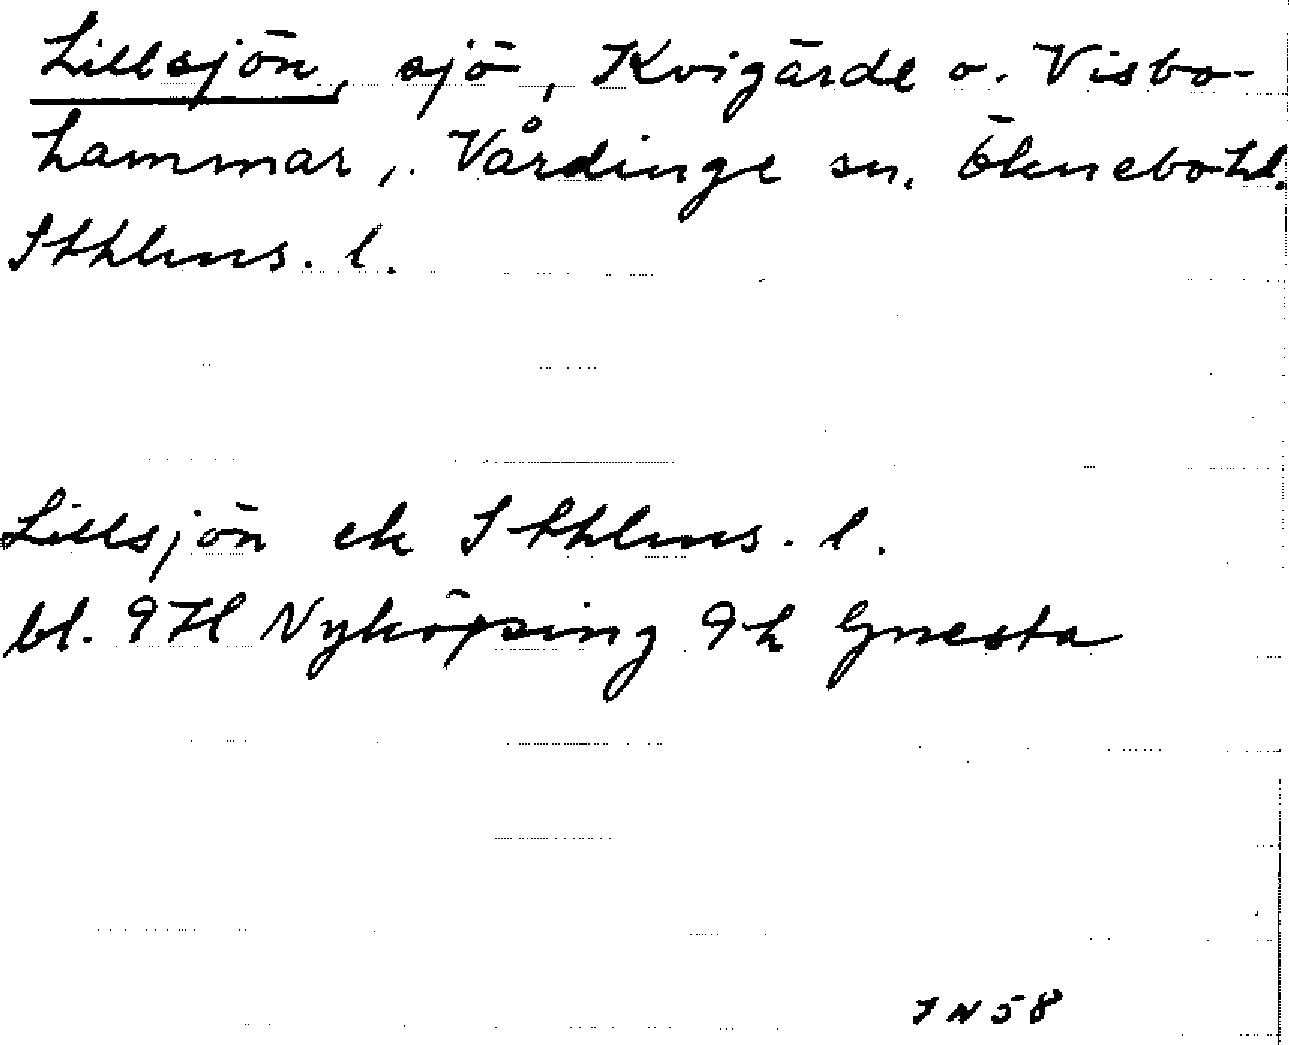 Lillsjön, sjö, Kvigärde o. Visbo-
hammar, Vårdinge sn. Öknebo hd.
Sthlms. l.
Lillsjön ek Sthlms. l.
bl. 9H Nyköping 9h Gnesta
IN58